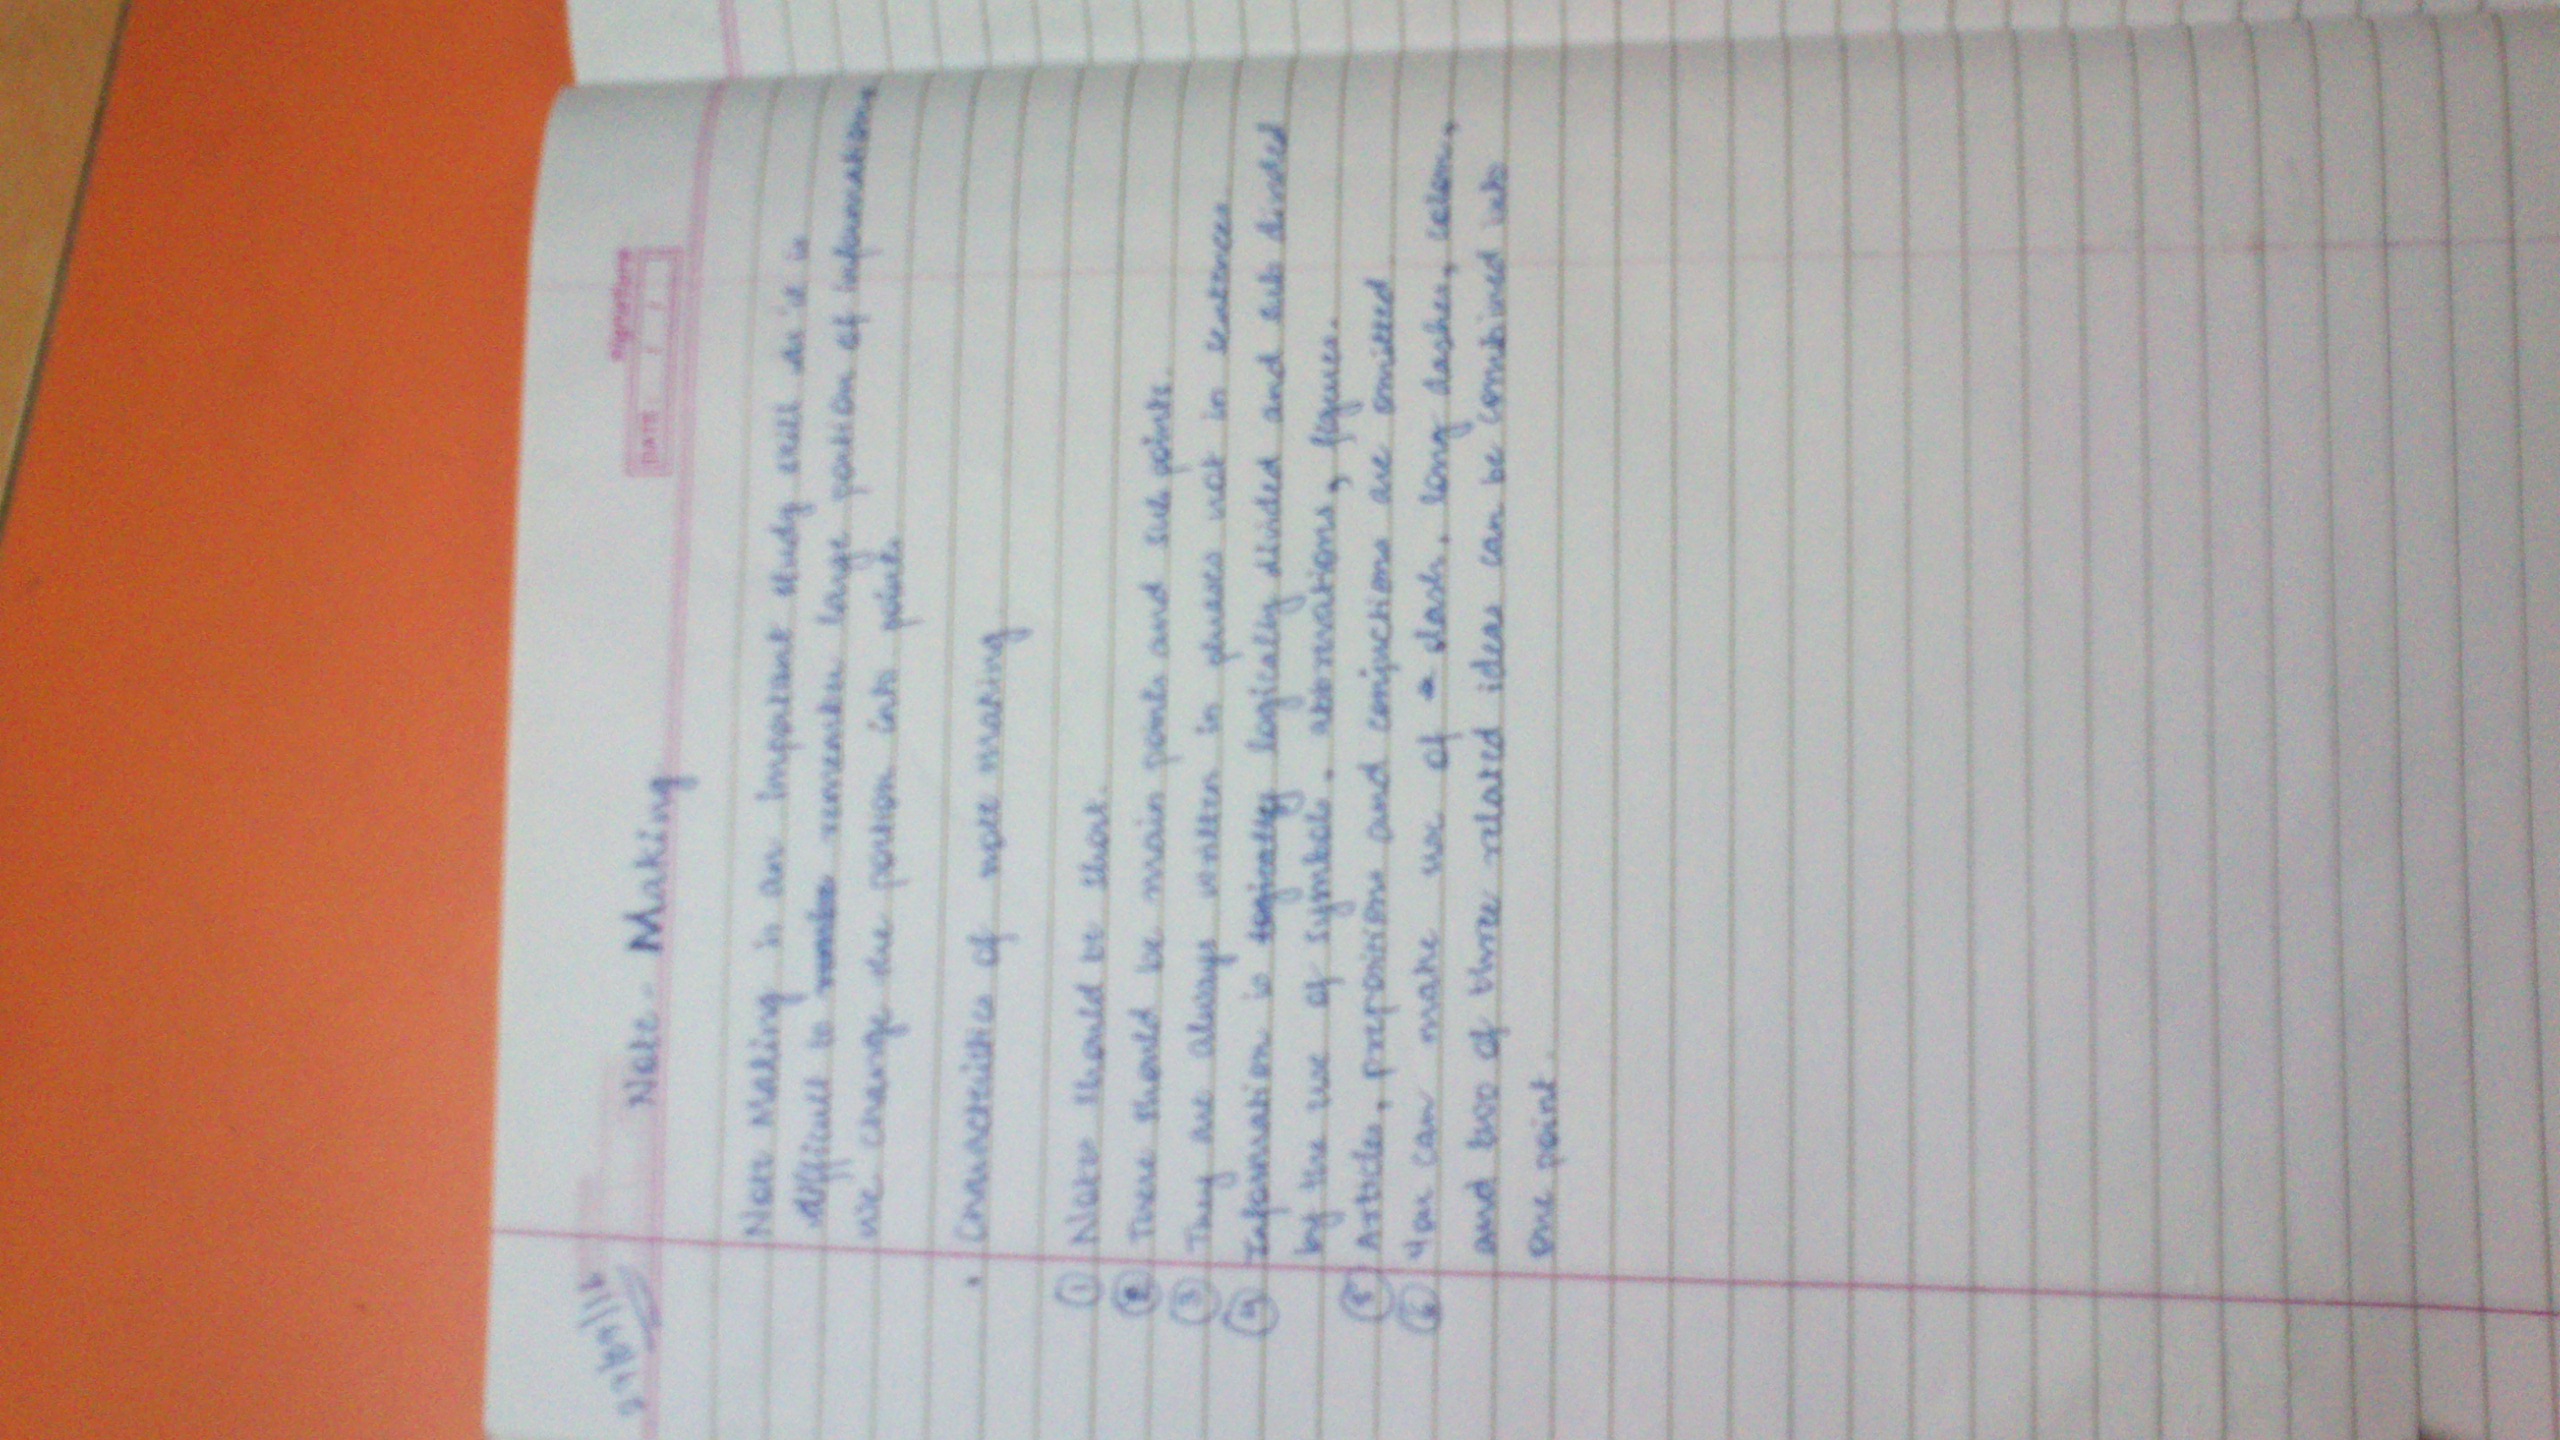 27/07/16
Note - Making
signature
DATE : / /
Note Making is an important study skill as it is
difficult to remember large portion of informations
we change the portion into points
• Characteristics of note making
① Notes should be short.
② There should be main points and sub points.
③ They are always written in phrases not in sentences
④ Information is logically logically divided and sub divided
by the use of symbols, abbrevations, figures.
⑤ Articles, prepositions and conjuctions are omitted
⑥ You can make use of dash, long dashes, colon,
and two of three related ideas can be combined into
one point.